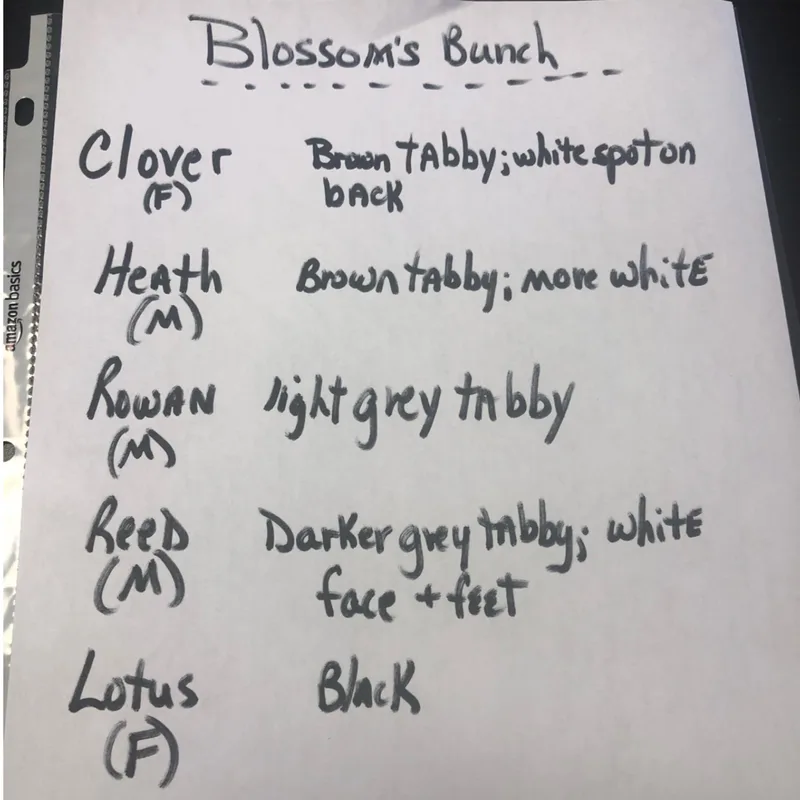 Blossom's Bunch
Clover Brown tAbby; white spot on
(F) bACK
HeAth Brown tAbby; more whitE
(M)
RowAN light grey tAbby
(M)
ReeD Darker grey tAbby; whitE
(M) face + feet
Lotus BlAcK
(F)
amazon basics